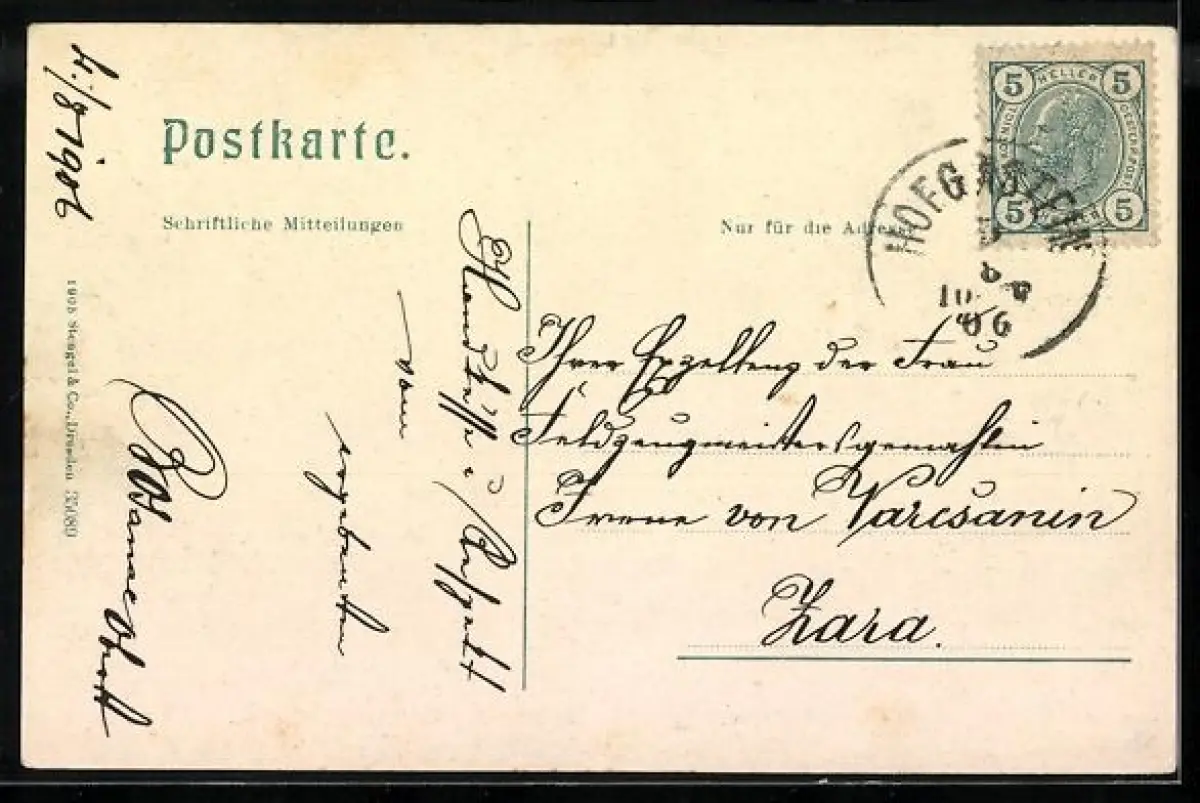 4./8 1906
Postkarte.
Schriftliche Mitteilungen
Nur für die Adresse
5 HELLER 5
5 HELLER 5
HOFGASTEIN
5
8
10
06
Ihrer Exzellenz der Frau
Feldzeugmeistersgemahlin
Irene von Varesanin
Zara.
Handküsse u.
vom
ergebensten
1905 Stengel & Co., Dresden 35080